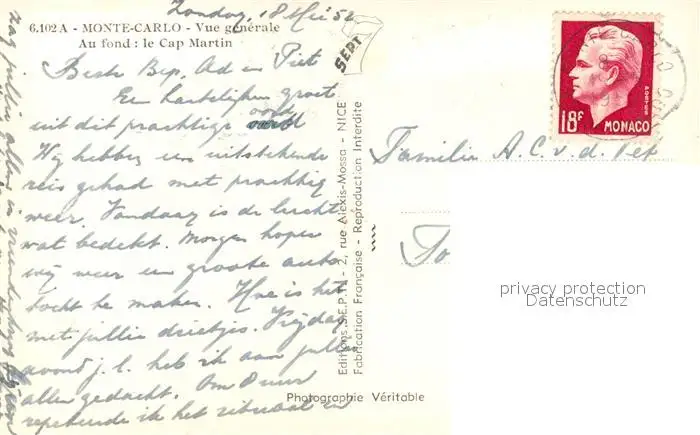 Zondag, 18 Mei 52
6.102 A - MONTE-CARLO - Vue générale
Au fond : le Cap Martin
Beste Bep, Ad en Piet
Een hartelijken groet
uit dit prachtige oord
Wij hebben een uitstekende
reis gehad met prachtig
weer. Vandaag is de lucht
wat bedekt. Morgen hopen
wij weer een groote auto
tocht te maken. Hoe is het
met jullie drietjes. Vrijdag
avond j.l. heb ik aan jullie
allen gedacht. Om 8 uur
repeteerde ik het rituaal en
zag jullie allen in
SEPT
Editions S.E.P.T. - 2, rue Alexis-Mossa - NICE
Fabrication Française - Reproduction Interdite
Photographie Véritable
18F
POSTES
MONACO
Familie A.C. v. d. Pet
privacy protection
Datenschutz